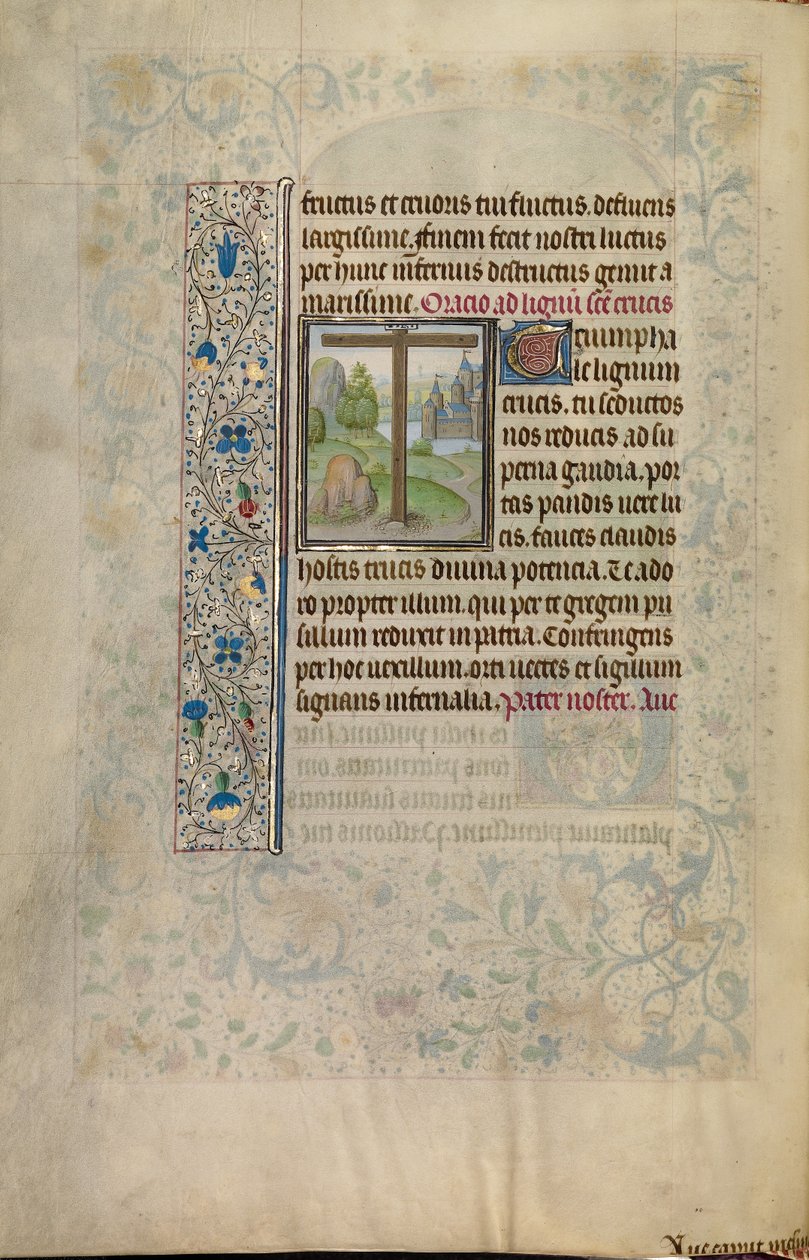 fructus et cruoris tui fluctus. defluens
largissime. Finem fecit nostri luctus
per hunc īfernus destructus gemit a
marissime. Oracio ad lignū scē crucis
Triumpha
le lignum
crucis. tu seductos
nos reducis ad su
perna gaudia. por
tas pandis vere lu
cis. fauces claudis
hostis trucis divina potencia. Te ado
ro propter illum. qui per te gregem pu
sillum reduxit in patria. Confringens
per hoc vexillum. orti vectes et sigillum
signans infernalia. Pater noster. Ave